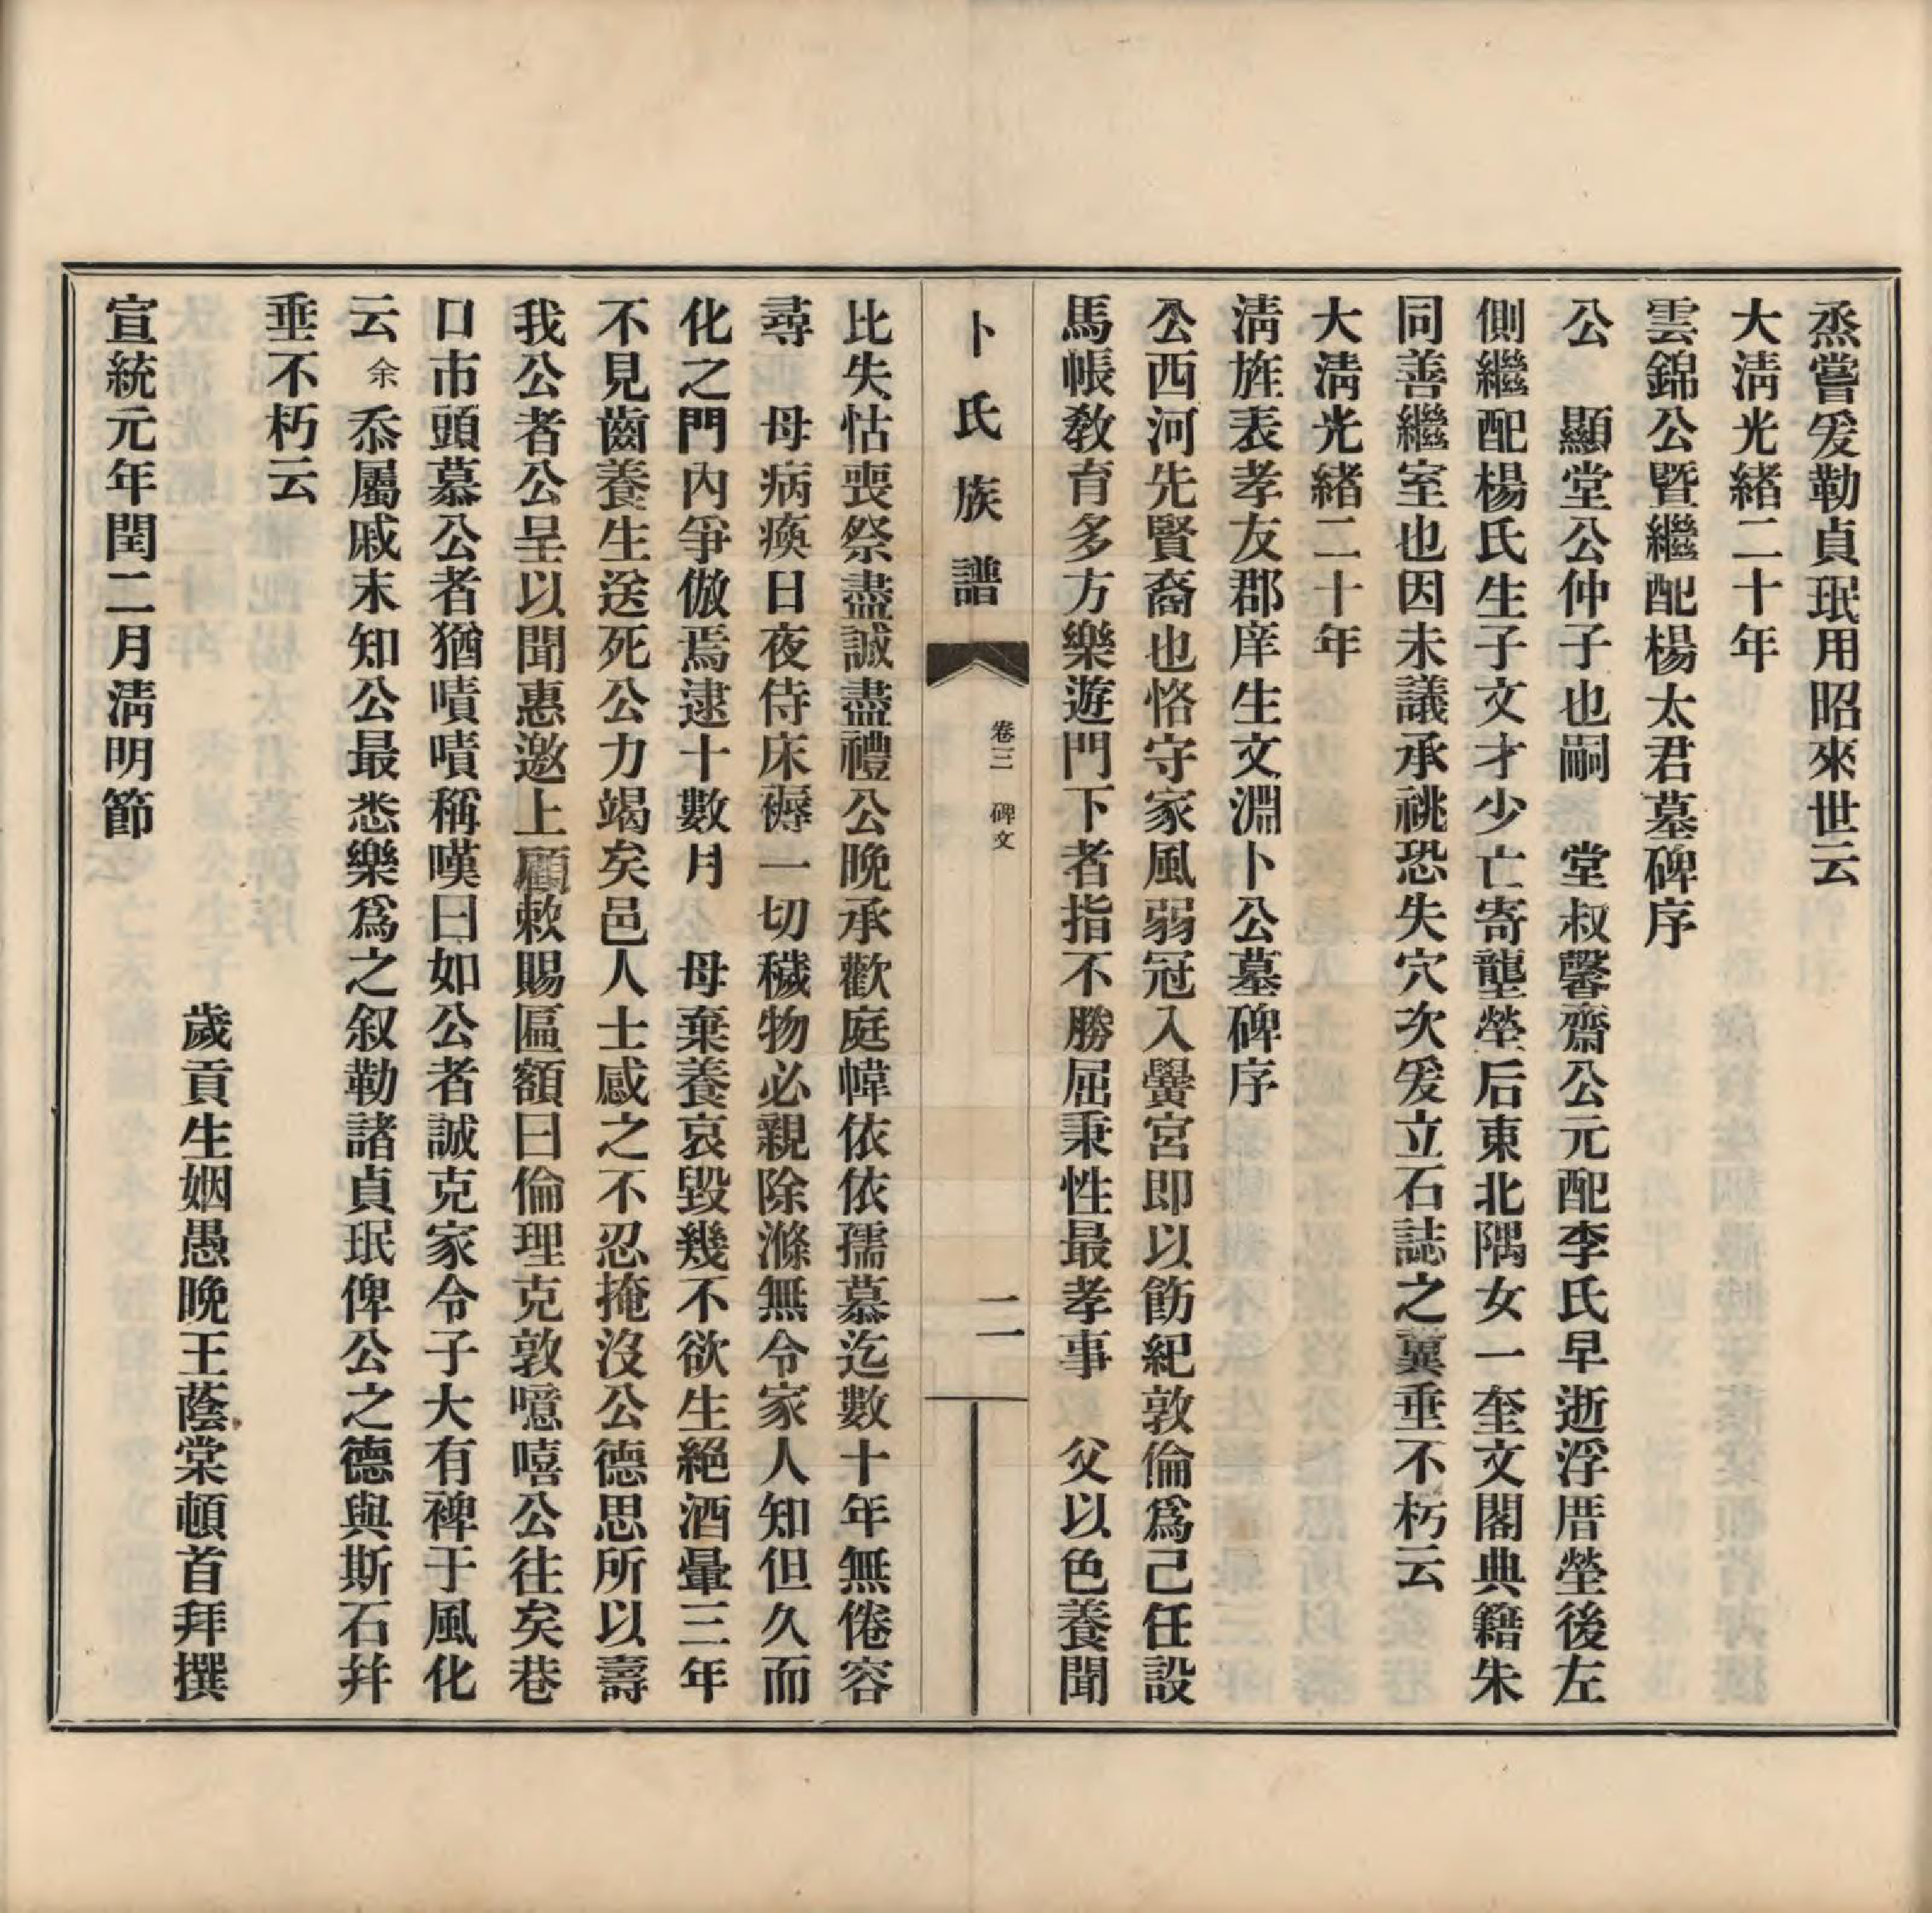 烝嘗爰勒貞珉用昭來世云
大淸光緖二十年
雲錦公暨繼配楊太君墓碑序
公　顯堂公仲子也嗣　堂叔馨齋公元配李氏早逝浮厝塋後左
側繼配楊氏生子文才少亡寄壟塋后東北隅女一奎文閣典籍朱
同善繼室也因未議承祧恐失穴次爰立石誌之冀垂不朽云
大淸光緖二十年
淸旌表孝友郡庠生文淵卜公墓碑序
公西河先賢裔也恪守家風弱冠入黌宮即以飭紀敦倫爲己任設
馬帳敎育多方樂遊門下者指不勝屈秉性最孝事　父以色養聞
卜氏族譜
卷三　碑文
二
比失怙喪祭盡誠盡禮公晩承歡庭幃依依孺慕迄數十年無倦容
尋　母病瘓日夜侍床褥一切穢物必親除滌無令家人知但久而
化之門內爭倣焉逮十數月　母棄養哀毀幾不欲生絕酒暈三年
不見齒養生送死公力竭矣邑人士感之不忍掩沒公德思所以壽
我公者公呈以聞惠邀上顧敕賜匾額曰倫理克敦噫嘻公往矣巷
口市頭慕公者猶嘖嘖稱嘆曰如公者誠克家令子大有裨于風化
云余忝屬戚末知公最悉樂爲之叙勒諸貞珉俾公之德與斯石幷
垂不朽云
歲貢生姻愚晩王蔭棠頓首拜撰
宣統元年閏二月淸明節